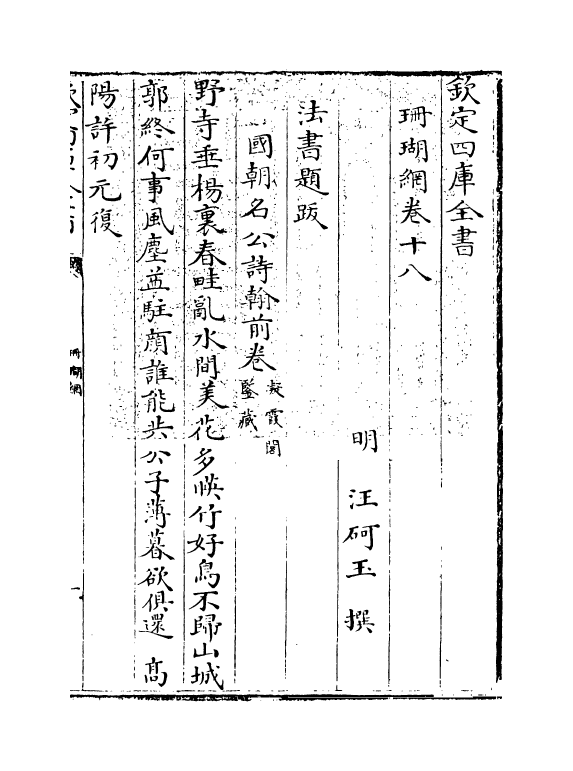 欽定四庫全書
珊瑚網卷十八
明 汪砢玉 撰
法書題跋
國朝名公詩翰前卷凝霞閣鑒藏
野寺垂楊裏春畦亂水間美花多暎竹好鳥不歸山城
郭終何事風塵益駐顔誰能共公子薄暮欲俱還 高
陽許初元復
珊瑚網
一